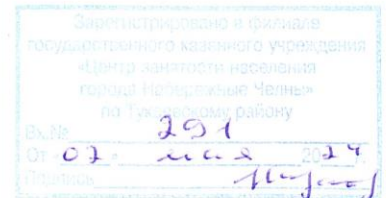 Зарегистрировано в филиале
государственного казенного учреждения
«Центр занятости населения
города Набережные Челны»
по Тукаевскому району
Вх.№ 291
От 02 мая 2024 г.
Подпись